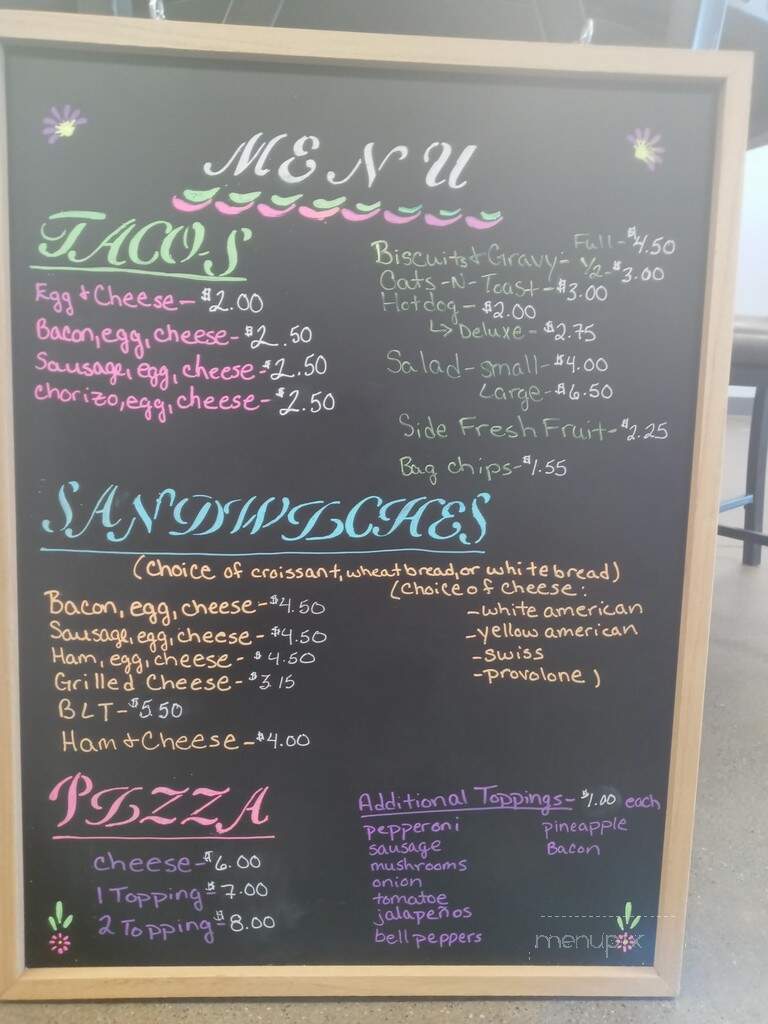 MENU
TACOS
Egg & Cheese - $2.00
Bacon, egg, cheese - $2.50
Sausage, egg, cheese - $2.50
chorizo, egg, cheese - $2.50
Full - $4.50
Biscuits & Gravy - 1/2 - $3.00
Oats -N- Toast - $3.00
Hotdog - $2.00
↳ Deluxe - $2.75
Salad - small - $4.00
Large - $6.50
Side Fresh Fruit - $2.25
Bag chips - $1.55
SANDWICHES
(choice of croissant, wheat bread, or white bread)
(choice of cheese:
- white american
- yellow american
- swiss
- provolone )
Bacon, egg, cheese - $4.50
Sausage, egg, cheese - $4.50
Ham, egg, cheese - $4.50
Grilled Cheese - $3.15
BLT - $5.50
Ham & Cheese - $4.00
PIZZA
cheese - $6.00
1 Topping - $7.00
2 Topping - $8.00
Additional Toppings - $1.00 each
pepperoni
sausage
mushrooms
onion
tomatoe
jalapeños
bell peppers
pineapple
Bacon
menupix